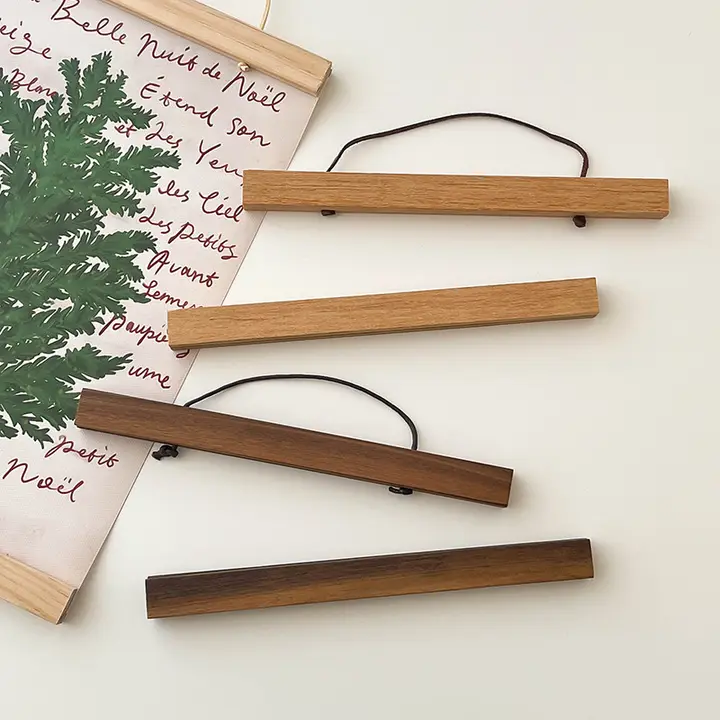 Belle Nuit de Noël
eige
Étend son
Blan
et Les Yeux
les Ciel
Les petits
Avant
paupiè
ume
petit
Noël